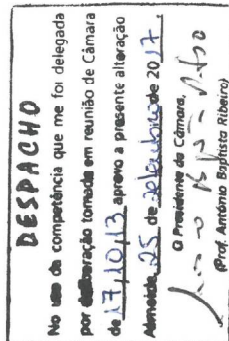 DESPACHO
No uso da competência que me foi delegada
por deliberação tomada em reunião de Câmara
de 17,10,13 aprovo a presente alteração
Almeida, 25 de setembro de 2017.
O Presidente da Câmara,
(Prof. António Baptista Ribeiro)